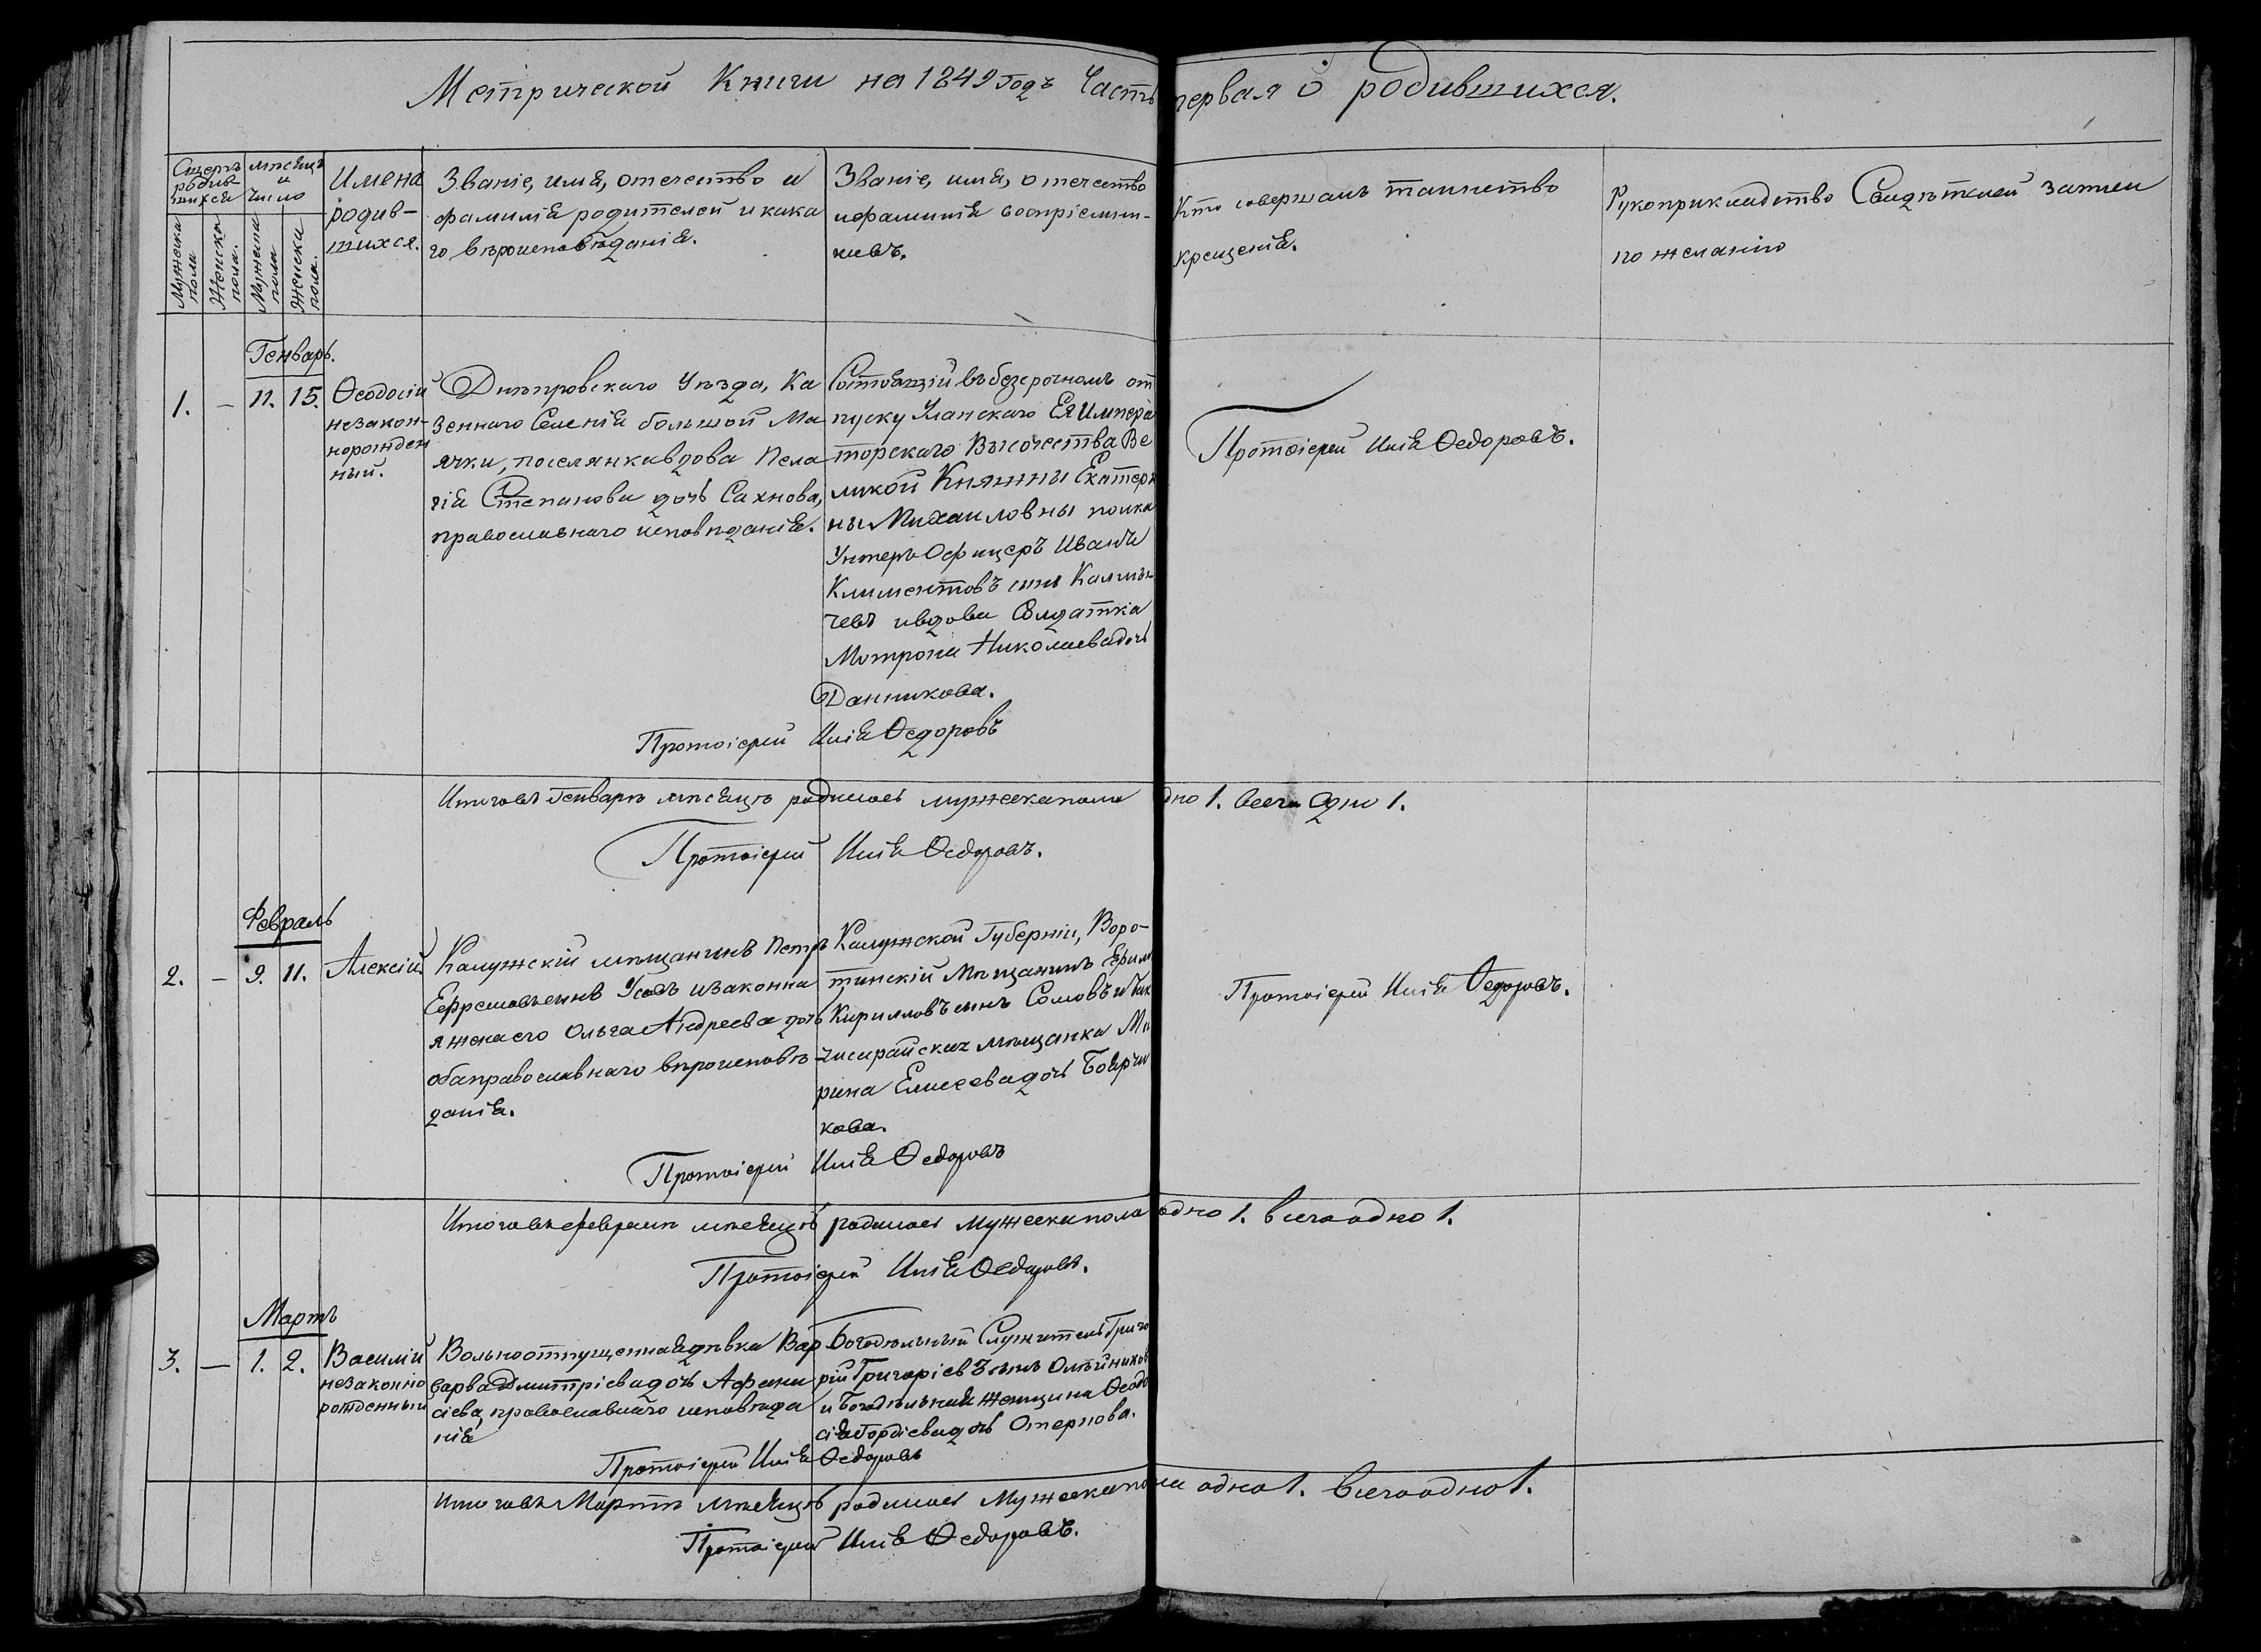 Метрической Книги на 1849 Годъ Часть первая о родившихся.
Счетъ родив-
шихся
мѣсяцъ
и
число
Мужеска
пола
Женска
пола.
Мужеска
пола
Женска
пола.
Имена
родив-
шихся.
Званіе, имя, отечество и
фамилія родителей и кака
го вѣроисповѣданія.
Званіе, имя, отечество
и фамилія воспріемни-
ковъ.
Кто совершалъ таинство
крещенія.
Рукоприкладство Свидѣтелей записи
по желанію
Генварь.
1. – 11. 15.
Ѳеодосій
незакон-
норожден
ный.
Днѣпровскаго Уѣзда, Ка
зеннаго Селенія большой Ма
ячки, поселянка вдова Пела
гія Степанова дочь Сахнова,
православнаго исповѣданія.
Состоящій въ безсрочномъ от
пуску Уланскаго Ея Импера
торскаго Высочества Ве
ликой Княжны Екатери
ны Михаиловны полка
Унтеръ Офицеръ Иванъ
Климентовъ сынъ Калмы-
чевъ и вдова Солдатка
Мотрона Николаева дочь
Данникова.
Протоіерей Илія Ѳедоровъ.
Протоіерей Илія Ѳедоровъ
Итого въ Генварѣ мѣсяцѣ родилось мужеска пола одно 1. всего Одно 1.
Протоіерей Илія Ѳедоровъ.
Февраль
2. – 9. 11.
Алексій
Калужскій мѣщанинъ Петръ
Ефремовъ сынъ и законна
я жена его Ольга Андреева дочь
оба православнаго вѣроисповѣ-
данія.
Калужской Губерніи, Воро-
тинскій Мѣщанинъ Ефим
Кирилловъ сынъ Сомовъ и Бах
чисарайская мѣщанка Ма
рина Елисеева дочь Боярчи
кова.
Протоіерей Илія Ѳедоровъ.
Протоіерей Илія Ѳедоровъ
Итого въ февралѣ мѣсяцѣ родилось Мужеска пола одно 1. всего одно 1.
Протоіерей Илія Ѳедоровъ.
Мартъ
3. – 1. 2.
Василій
незаконно
рожденный
Вольноотпущенная дѣвка Вар
вара Дмитріева дочь Афана
сіева, православнаго исповѣда
нія
Богодѣльный Служитель Григо
рій Григоріевъ сынъ Олѣйников
и Богодѣльная женщина Ѳеодо
сія Гордіева дочь Отернова.
Протоіерей Илія Ѳедоровъ
Итого въ Мартѣ мѣсяцѣ родилось Мужеска пола одно 1. всего одно 1.
Протоіерей Илія Ѳедоровъ.